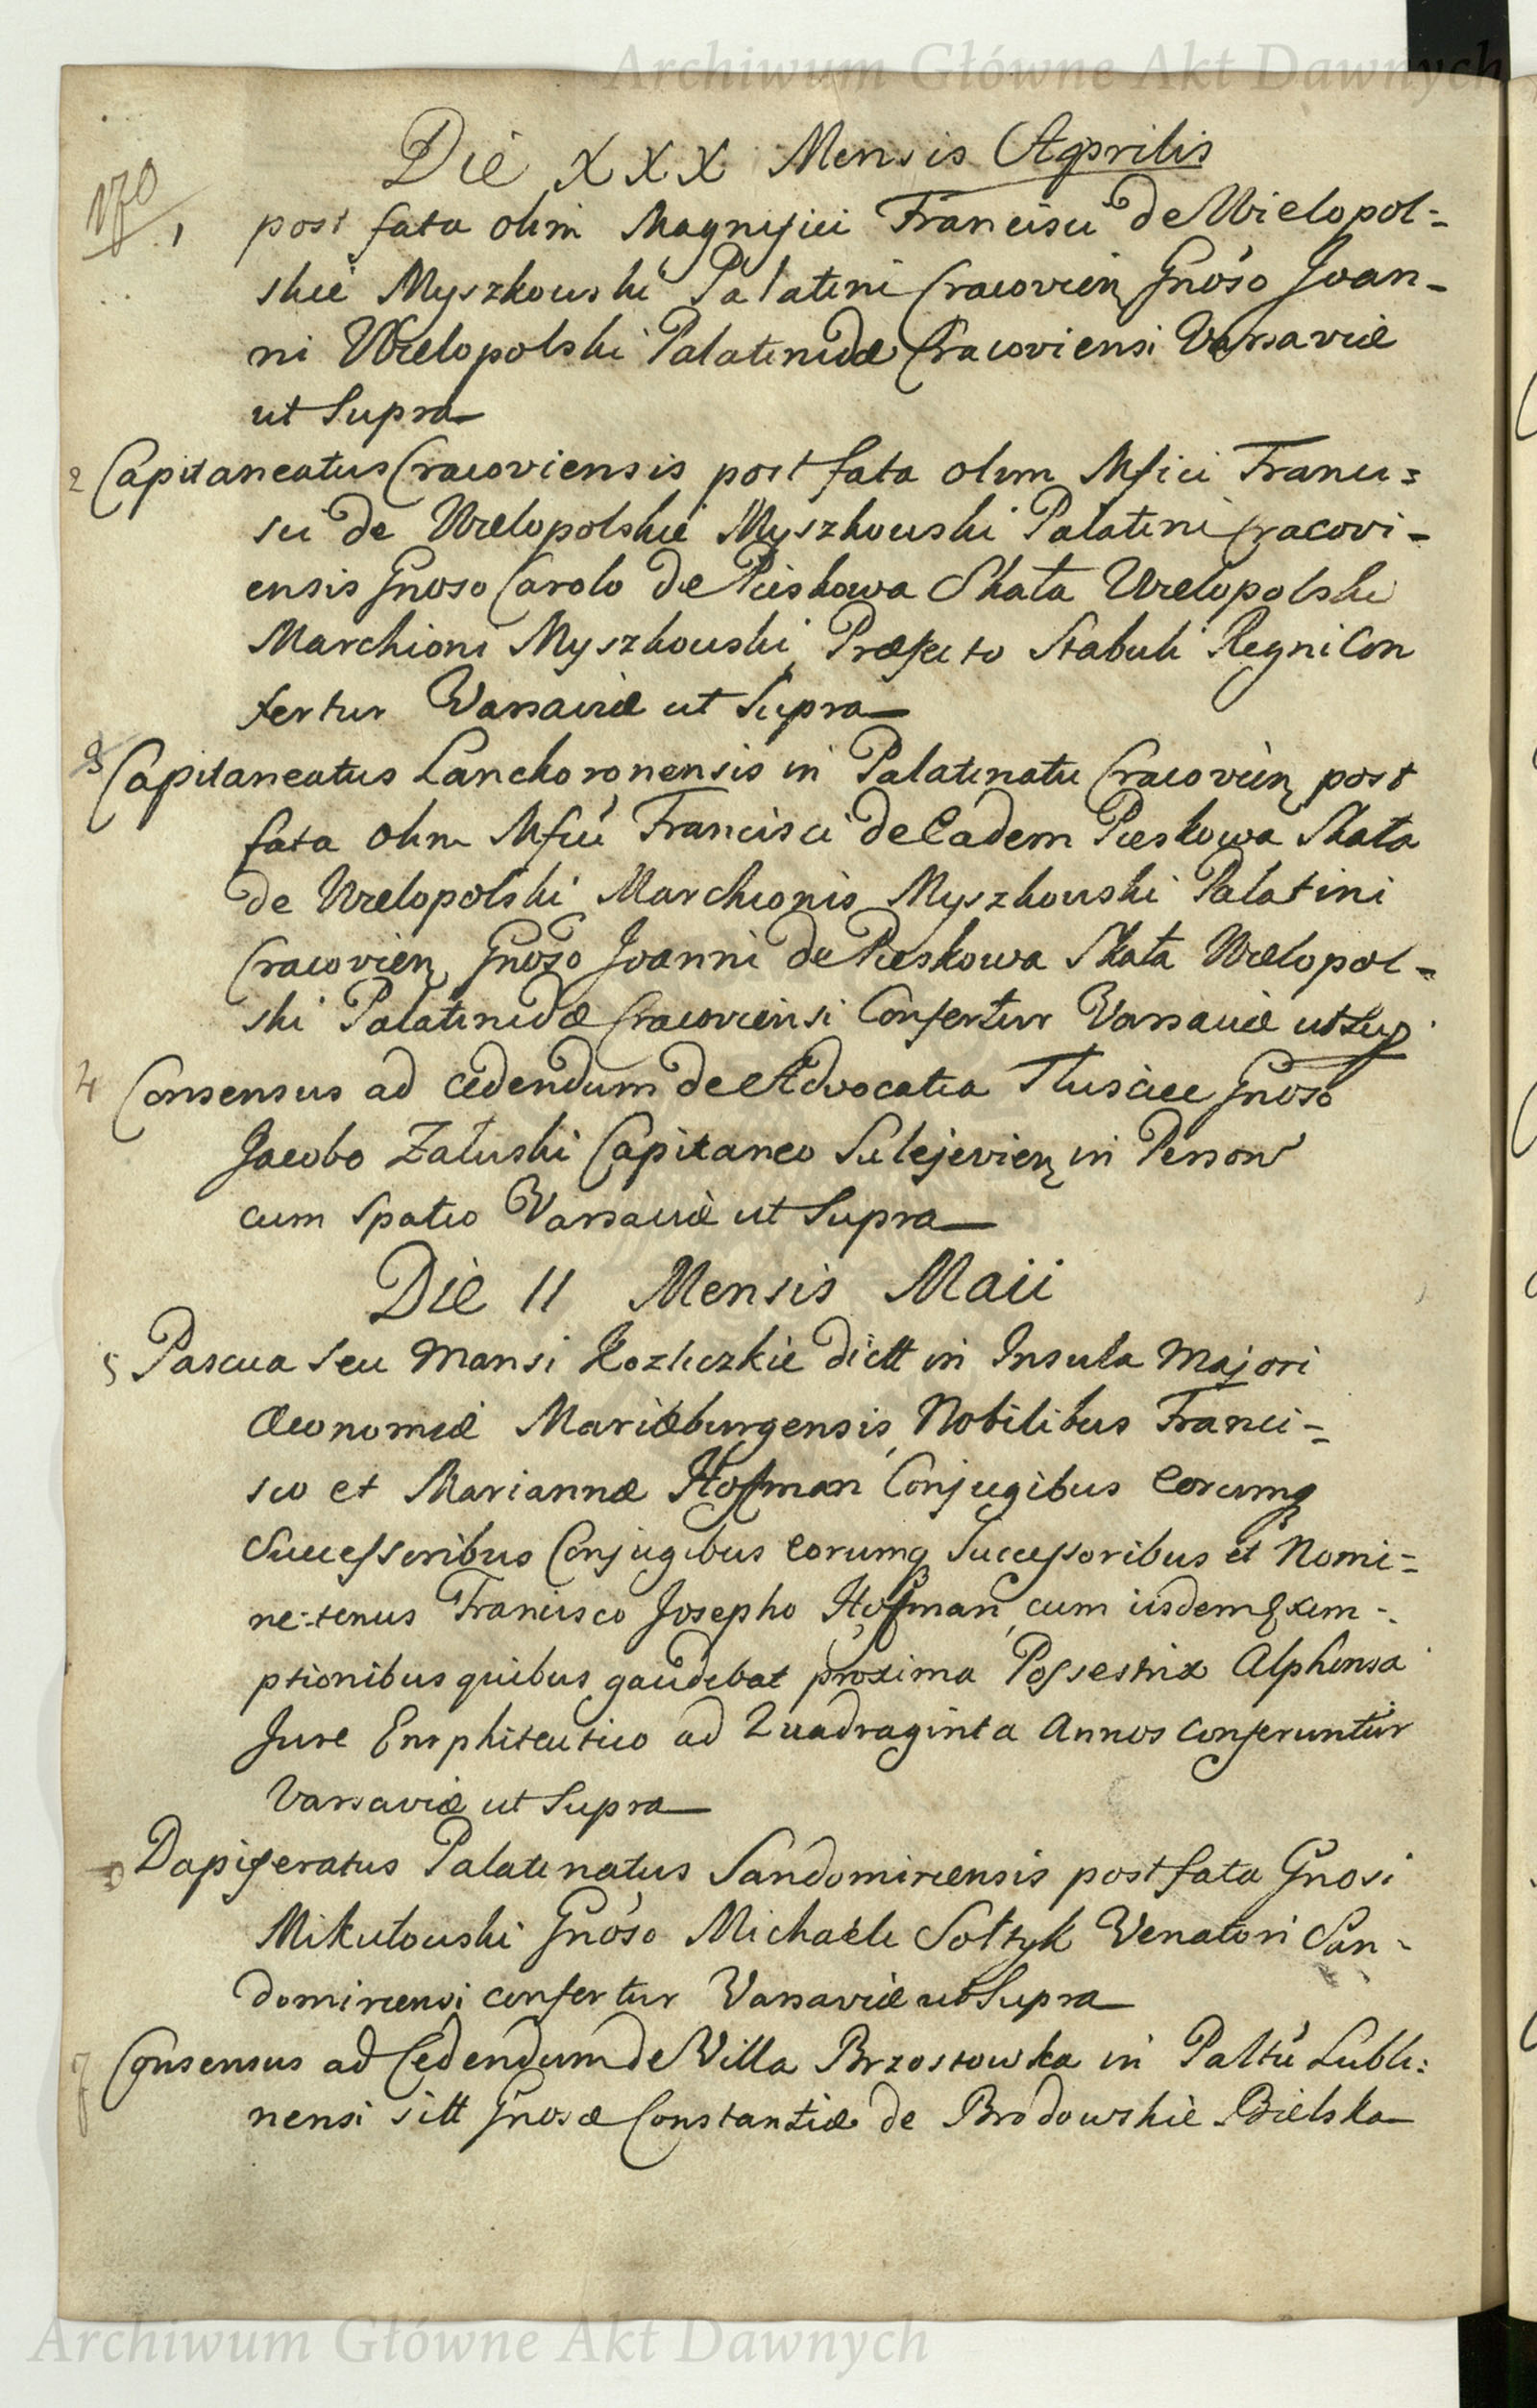 Archiwum Główne Akt Dawnych
Die XXX Mensis Aprilis
170
1 post fata olim Magnifici Francisci de Wielopol=
skie Myszkowski Palatini Cracovien Gnoso Joan-
ni Wielopolski Palatinidæ Cracoviensi Varsaviæ
ut Supra
2 Capitaneatus Cracoviensis post fata olim Mfici Franci=
sci de Wielopolskie Myszkowski Palatini Cracovi-
ensis Gnoso Carolo de Pieskowa Skała Wielopolski
Marchioni Myszkowski Præfecto Stabuli Regni Con
fertur Varsaviæ ut Supra
3 Capitaneatus Lanckoronensis in Palatinatu Cracovien post
fata olim Mfici Francisci de Eadem Pieskowa Skała
de Wielopolski Marchionis Myszkowski Palatini
Cracovien Gnoso Joanni de Pieskowa Skała Wielopol-
ski Palatinidæ Cracoviensi Confertur Varsaviæ ut Sup
4 Consensus ad cedendum de Advocatia Tlusciec Gnoso
Jacobo Załuski Capitaneo Sulejevien in Person
cum Spatio Varsaviæ ut Supra
Die 11 Mensis Maii
5 Pascua seu Mansi Kozliczkie dictt in Insula Majori
Œconomiæ Mariæburgensis Nobilibus Franci-
sco et Mariannæ Hoffman Conjugibus Eorumq
Successoribus Conjugibus eorumq Successoribus et Nomi=
ne-tenus Francisco Josepho Hoffman cum iisdem Exem-
ptionibus quibus gaudebat proxima Possestrix Alphonsa
Jure Emphiteutico ad Quadraginta Annos conferuntur
Varsaviæ ut Supra
Dapiferatus Palatinatus Sandomiriensis post fata Gnosi
Mikułowski Gnoso Michaeli Sołtyk Venatori San-
domiriensi confertur Varsaviæ ut Supra
7 Consensus ad Cedendum de Villa Brzostowka in Paltu Lubli:
nensi sitt Gnosæ Constantiæ de Brodowskie Bielska
Archiwum Główne Akt Dawnych